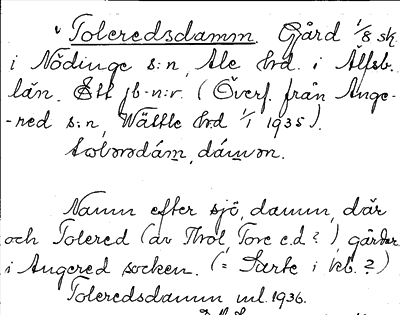 v Toleredsdamm. Gård 1/8 sk.
i Nödinge s:n, Ale hrd. i Älfsb.
län. Ett jb-n:r. (Överf. från Ange-
-red s:n, Wättle hrd 1/1 1935).
dámm, dámmən.
Namn efter sjö, damm, där
och Tolered (av Thol, Tore e.d.?) gårdar
i Angered socken. (= Sarke i kb.?)
Toleredsdamm ml. 1936.